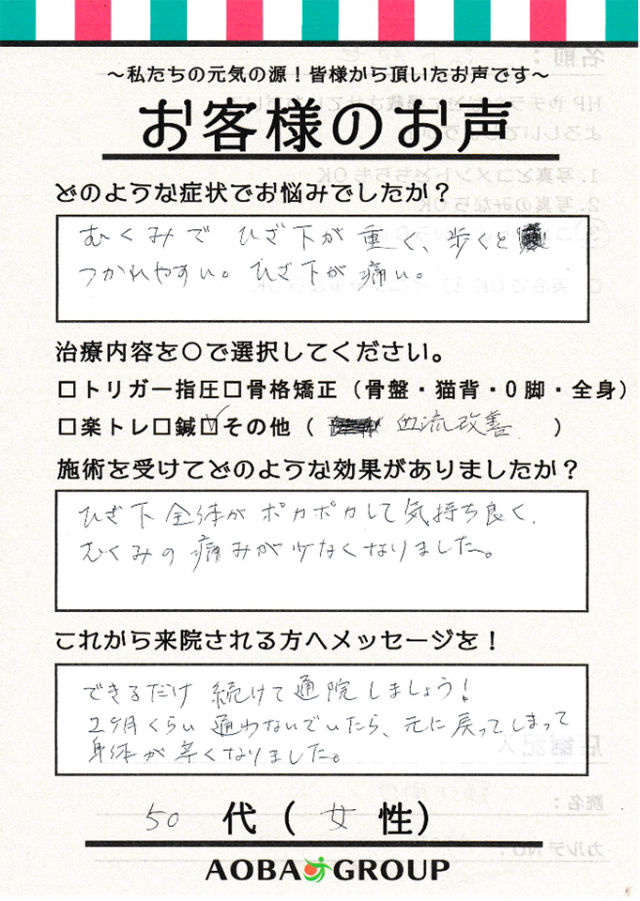 ～私たちの元気の源！皆様から頂いたお声です～
お客様のお声
どのような症状でお悩みでしたか？
むくみで ひざ下が重く、歩くと
つかれやすい。ひざ下が痛い。
治療内容を〇で選択してください。
□トリガー指圧□骨格矯正（骨盤・猫背・O脚・全身）
□楽トレ□鍼☑その他（ 血流改善 ）
施術を受けてどのような効果がありましたか？
ひざ下全体がポカポカして気持ち良く、
むくみの痛みが少なくなりました。
これから来院される方へメッセージを！
できるだけ 続けて通院しましょう！
2ヶ月くらい 通わないでいたら、元に戻ってしまって
身体が辛くなりました。
50 代（ 女 性）
AOBA GROUP